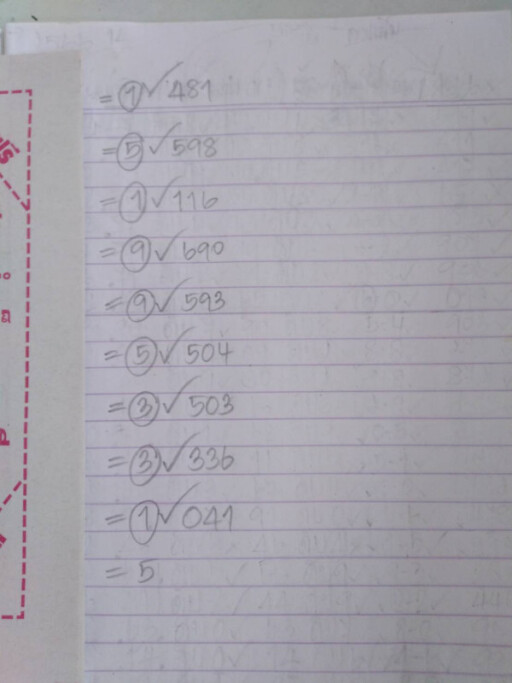 = ① ✓ 481
= ⑤ ✓ 598
= ① ✓ 116
= ⑨ ✓ 690
= ⑨ ✓ 593
= ⑤ ✓ 504
= ③ ✓ 503
= ③ ✓ 336
= ① ✓ 041
= 5